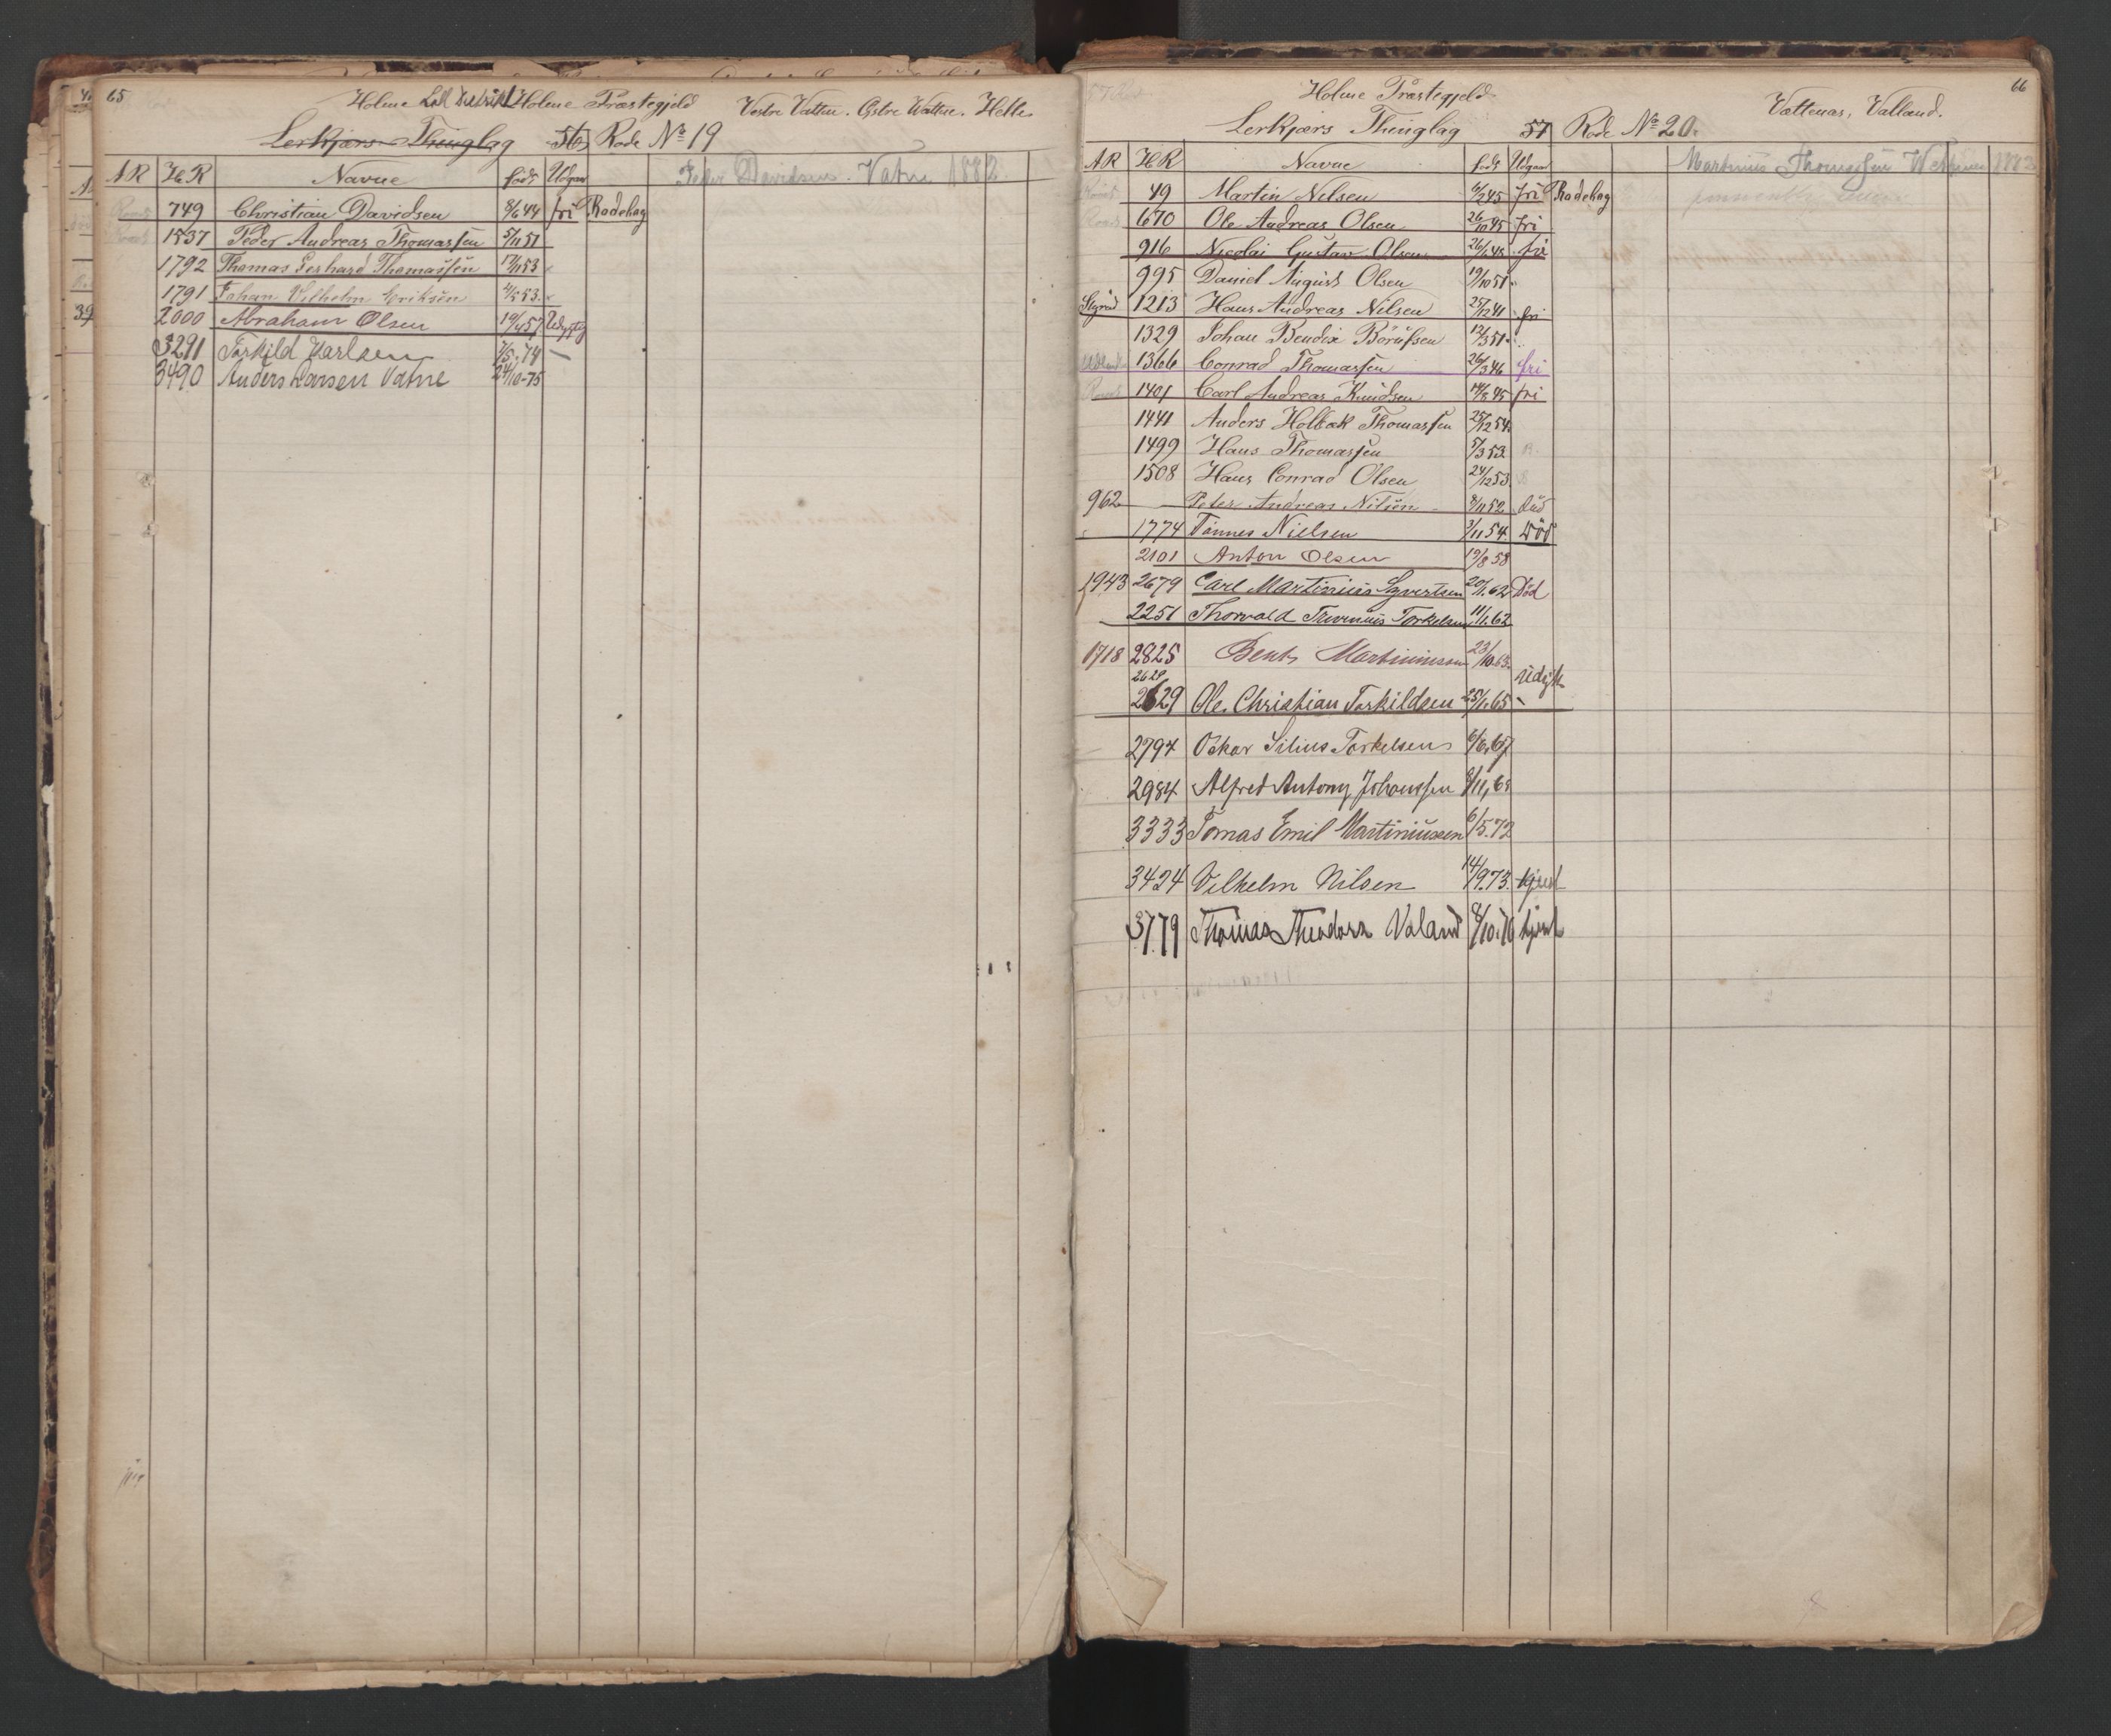 65
Holme Præstegjeld Vestre Vatne. Østre Vatne. Helle
Lerkjærs Thinglag 56 Rode No 19
AR HR Navne født Udgav
Peder Davidsen. Vatne 1882
749 Christian Davidsen 8/6 44 fri Rodelag
1537 Peder Andreas Thomassen 5/11 51
1792 Thomas Gerhard Thomassen 17/11 53
1791 Johan Vilhelm Eriksen 4/5 53
2000 Abraham Olsen 19/4 57 Udygtig
3291 Torkild Karlsen 7/5 74 —
3490 Anders Larsen Vatne 24/10-75
66
Holme Præstegjeld Vattenæs, Valland.
Lerkjærs Thinglag 57 Rode No 20.
AR HR Navne født Udgav
Martinius Thomassen 1882
49 Martin Nilsen 6/2 45 fri Rodelag
670 Ole Andreas Olsen 26/10 45 fri
916 Nicolai Gustav Olsen 26/1 48 fri
995 Daniel August Olsen 19/10 51
1213 Hans Andreas Nilsen 25/12 41 fri
1329 Johan Bendix Börufsen 12/3 51
1366 Conrad Thomassen 26/3 46 fri
1401 Carl Andreas Knudsen 14/8 45 fri
1441 Anders Holbæk Thomassen 25/12 54
1499 Hans Thomassen 5/3 53
1508 Hans Conrad Olsen 24/12 53
962 Peter Andreas Nilsen 8/11 52 død
1774 Tönnes Nielsen 3/11 54 Död
2101 Anton Olsen 19/8 58
1943 2679 Carl Martinius Syvertsen 20/1 62 Död
2251 Thorvald Torkelsen 11/1 62
1718 2825 Bent Martiniussen 23/10 63
2629
2629 Ole Christian Torkildsen 25/1 65 -
2794 Oskar Silius Torkelsen 6/6 67
2984 Alfred Antony Johanssen 8/11, 68
3333 Tomas Emil Martiniussen 6/5.72
3424 Vilhelm Nilsen 14/9.73. tjent
3779 Thomas Theodor Valand 8/10.76 tjent